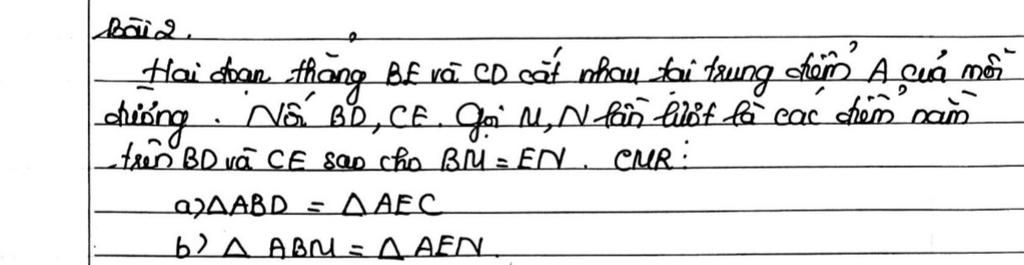 Bài 2.
Hai đoạn thẳng BE và CD cắt nhau tại trung điểm A của mỗi
đường. Nối BD, CE. Gọi M, N lần lượt là các điểm nằm
trên BD và CE sao cho BM = EN. CMR:
a) △ABD = △AEC
b) △ABM = △AEN.